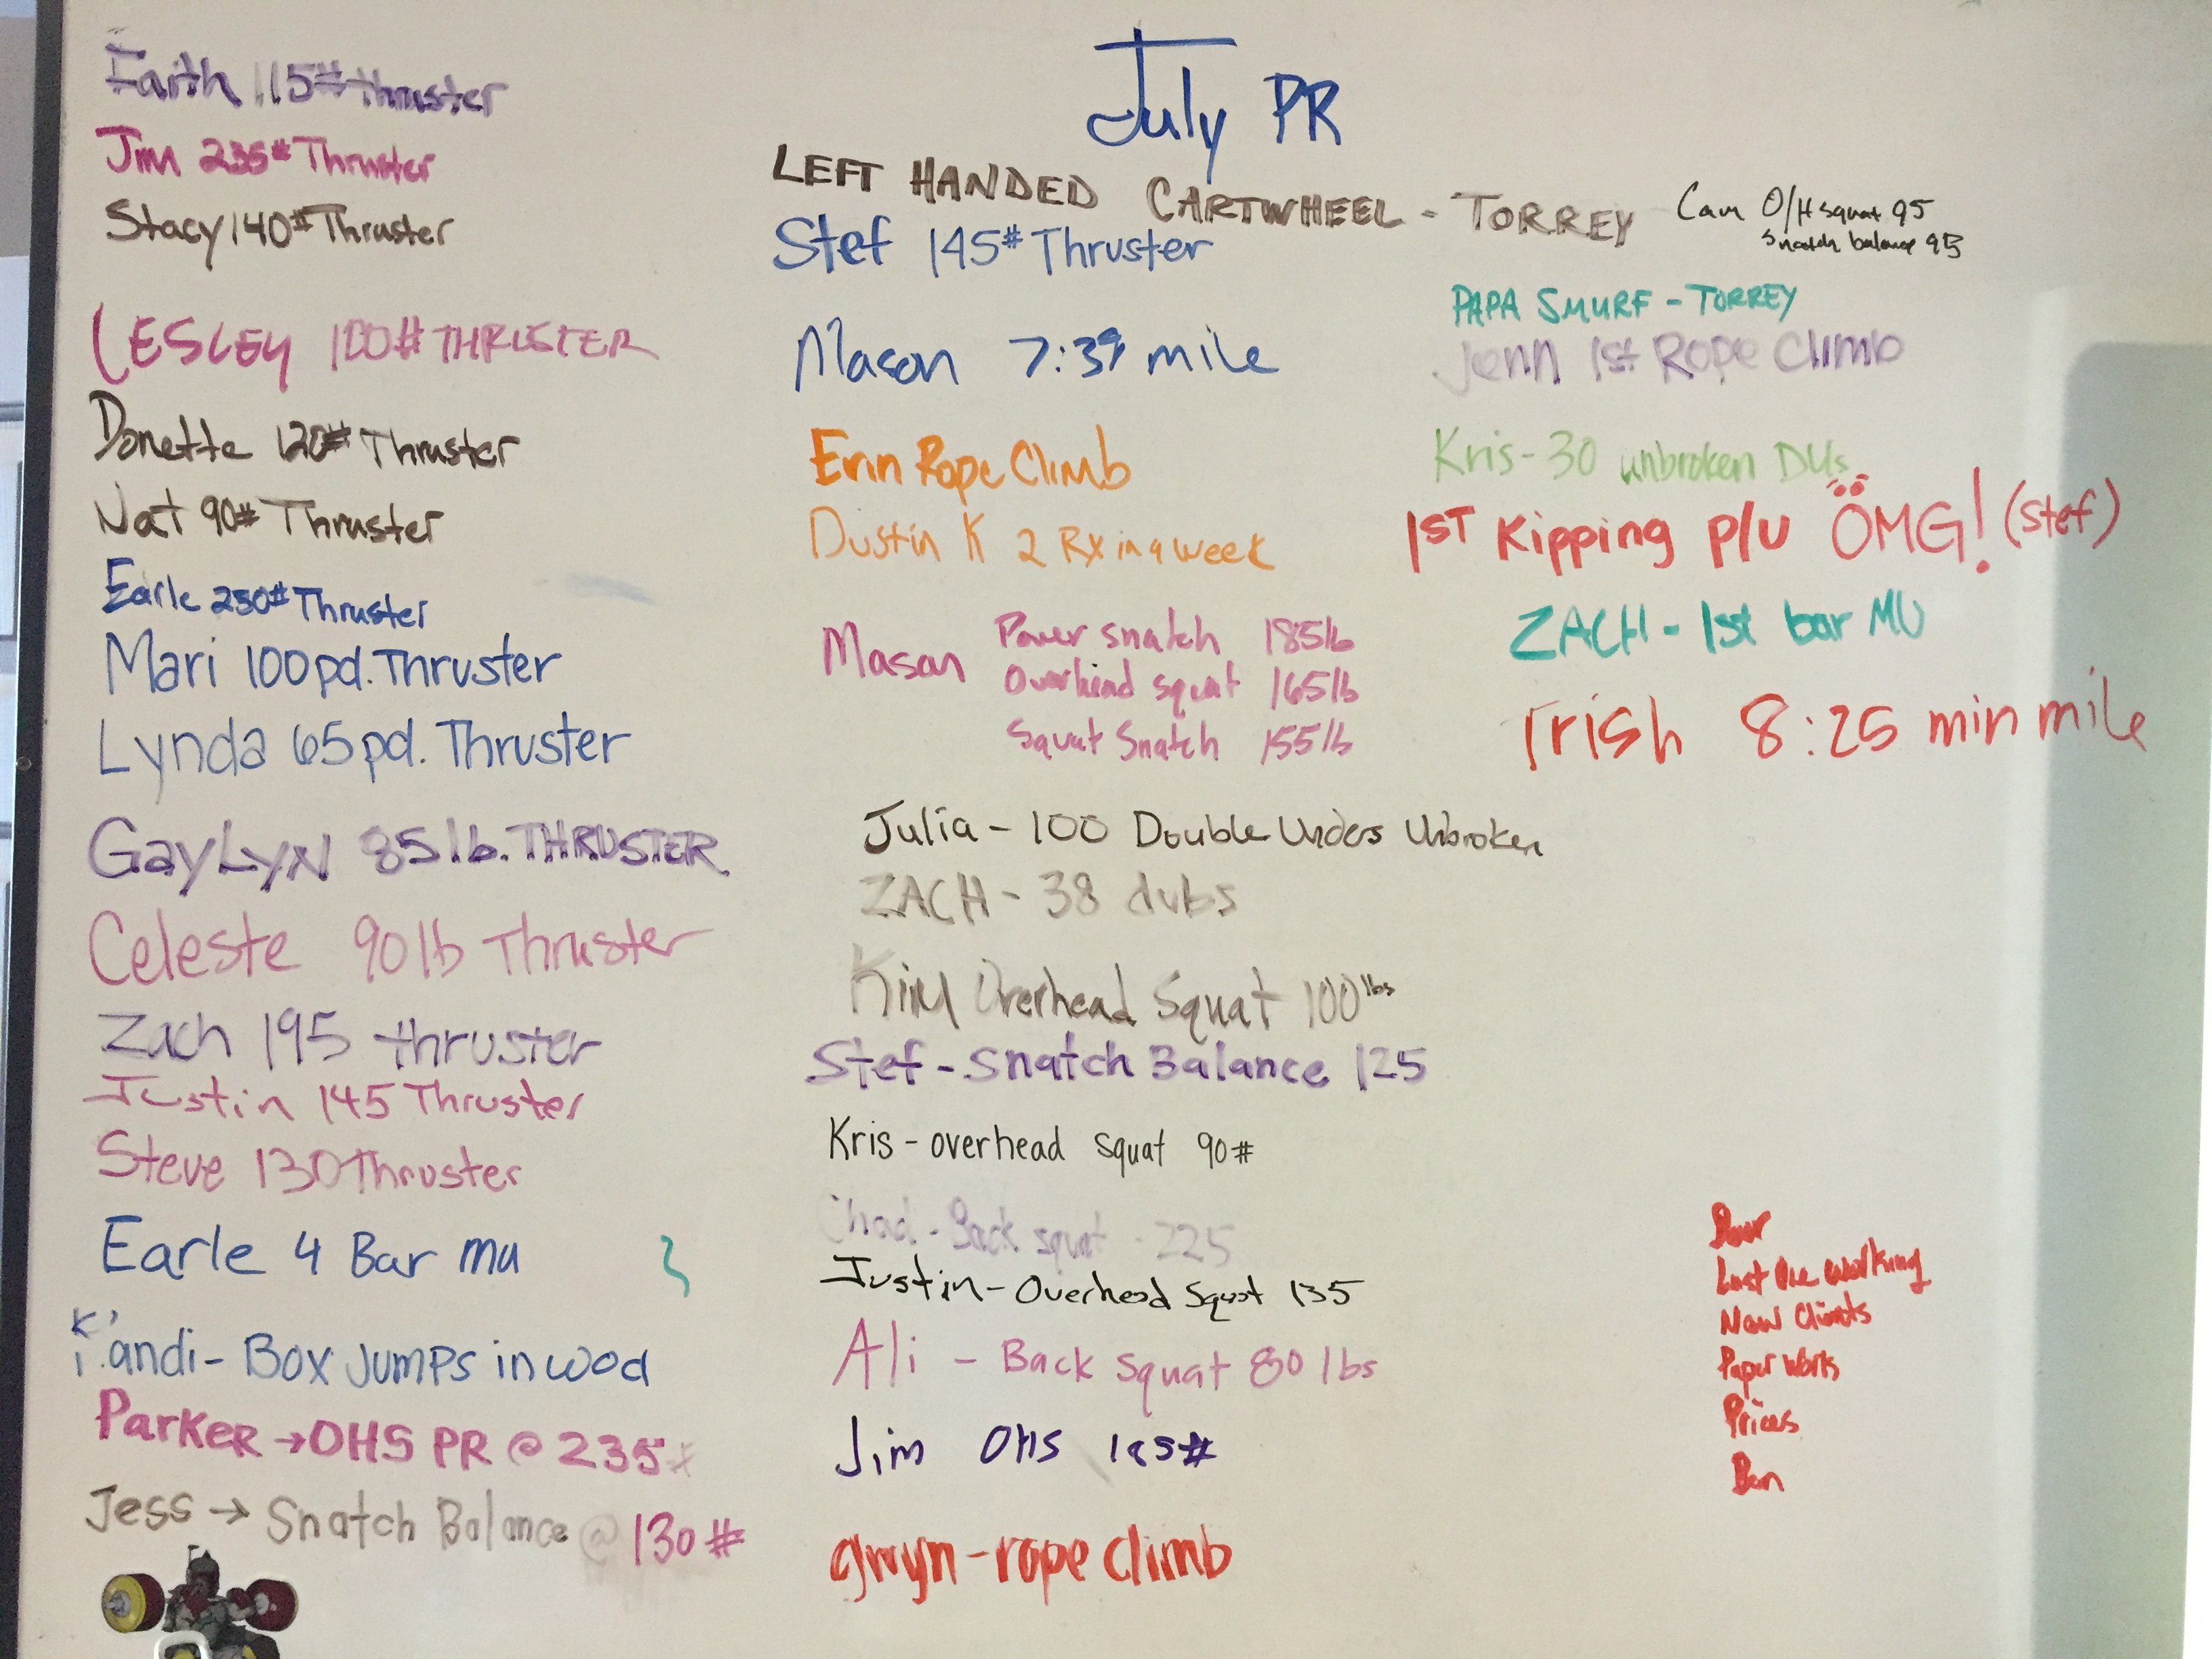 July PR
Faith 115# thruster
Jim 235# Thruster
Stacy 140# Thruster
LESLEY 100# THRUSTER
Donette 120# Thruster
Nat 90# Thruster
Earle 230# Thruster
Mari 100pd. Thruster
Lynda 65pd. Thruster
GayLyN 85lb. THRUSTER
Celeste 90lb Thruster
Zach 195 thruster
Justin 145 Thruster
Steve 130 Thruster
Earle 4 Bar mu
K'andi- Box Jumps in wod
Parker → OHS PR @ 235#
Jess → Snatch Balance @ 130#
LEFT HANDED CARTWHEEL - TORREY
Stef 145# Thruster
Mason 7:39 mile
Erin Rope Climb
Dustin K 2 Rx in a week
Mason Power snatch 185lb
Overhead squat 165lb
Squat Snatch 155lb
Julia - 100 Double Unders Unbroken
ZACH - 38 dubs
Kim Overhead Squat 100lbs
Stef - Snatch Balance 125
Kris - overhead squat 90#
Chad - Back squat - 225
Justin - Overhead Squat 135
Ali - Back Squat 80 lbs
Jim OHS 185#
gwyn - rope climb
Cam O/H squat 95
snatch balance 95
PAPA SMURF - TORREY
Jenn 1st Rope Climb
Kris - 30 unbroken DUs
1ST Kipping P/U OMG! (Stef)
ZACH - 1st bar MU
Trish 8:25 min mile
Last One working
New Clients
Paper Work
Prices
Ben